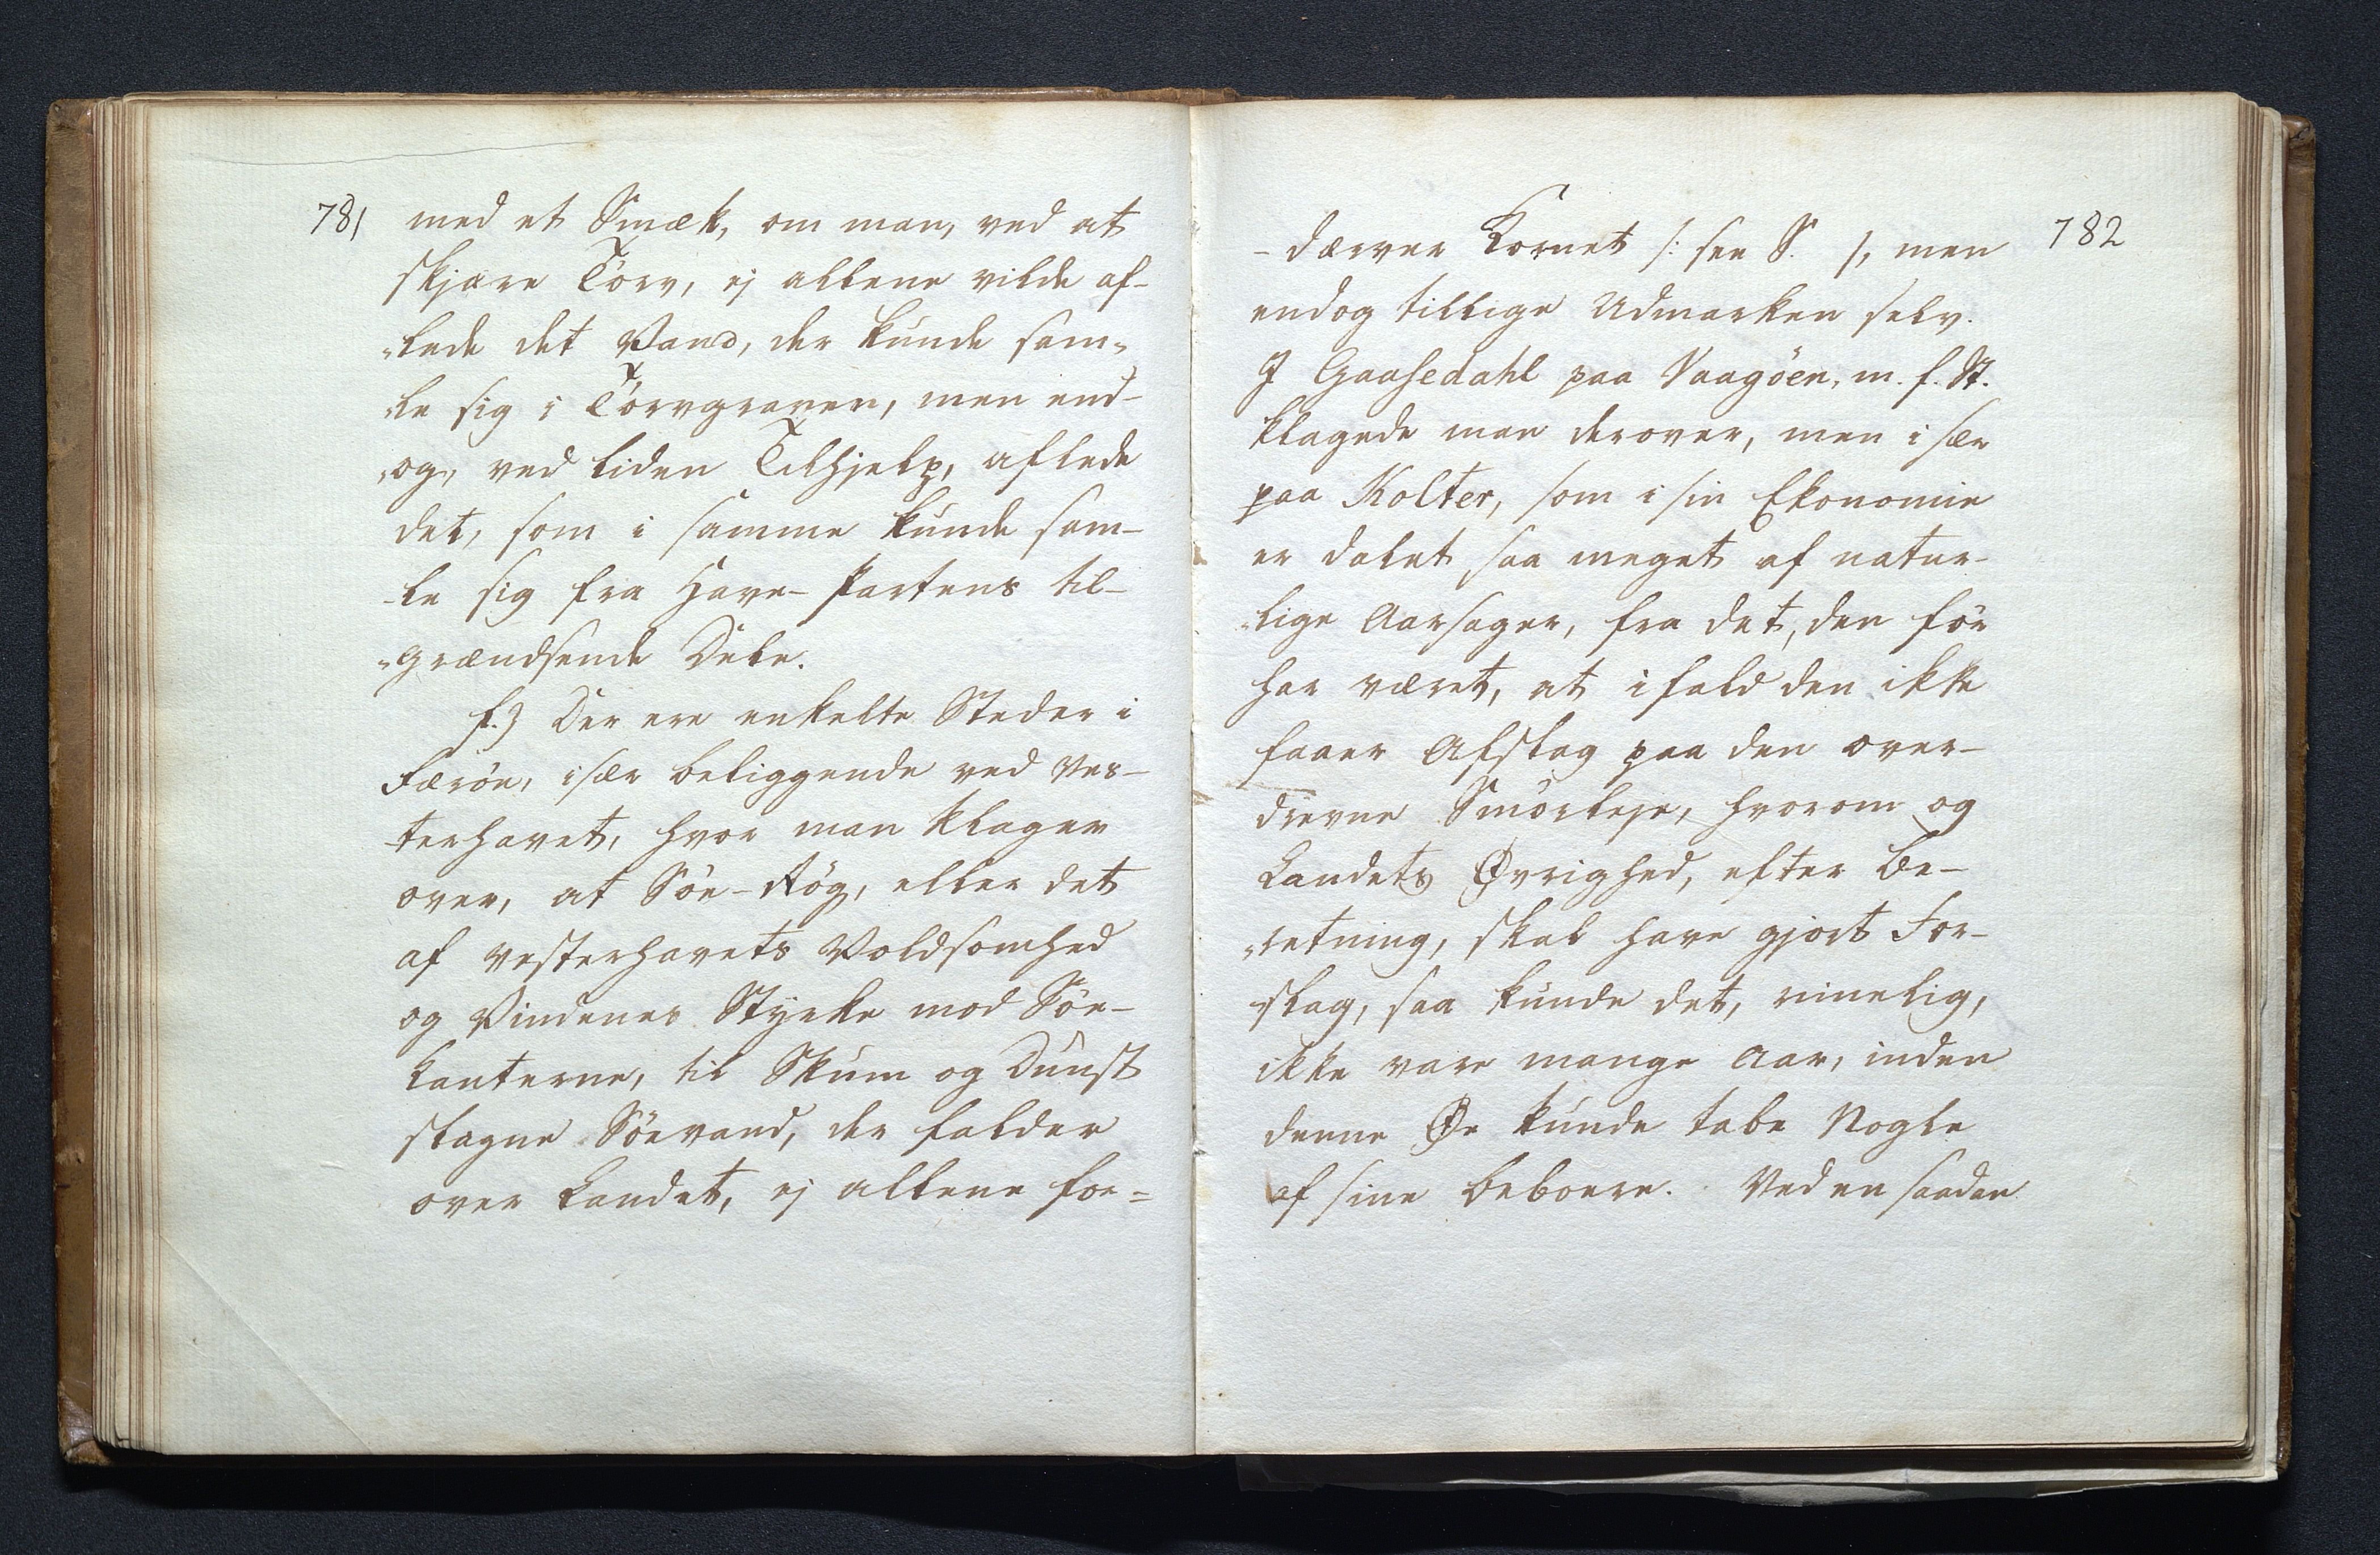 781
med et Smæk, om man, ved at
skjære Törv, ej allene vilde af-
„lede det Vand, der kunde sam„
„le sig i Törvgraven, men end-
„og, ved liden Tilhjelp, aflede
det, som i samme kunde sam-
-le sig fra Have-Partens til-
„grændsende Dele.
f.) Der ere enkelte Steder i
Færöe, især beliggende ved Ves-
-terhavet, hvor man klager
over, at Söe-Rög, eller det
af Vesterhavets Voldsomhed
og Vindenes Styrke mod Söe-
kanterne, til Skum og Dunst
slagne Söevand, der falder
over Landet, ej allene for=
782
-dærver Kornet /: see S. /, men
endog tillige Udmarken selv.
J Gaasedahl paa Vaagöen, m. f. St.
klagede man derover, men i sær
paa Kolter, som i sin Ekonomie
er dalet saa meget af natur-
„lige Aarsager, fra det, den för
har været, at ifald den ikke
faaer Afslag paa den over-
drevne Smörleje, hvorom og
Landets Øvrighed, efter Be-
„retning, skal have gjort For-
-slag, saa kunde det, rimelig,
ikke vare mange Aar, inden
denne Øe kunde tabe Nogle
af sine Beboere. Ved en saadan